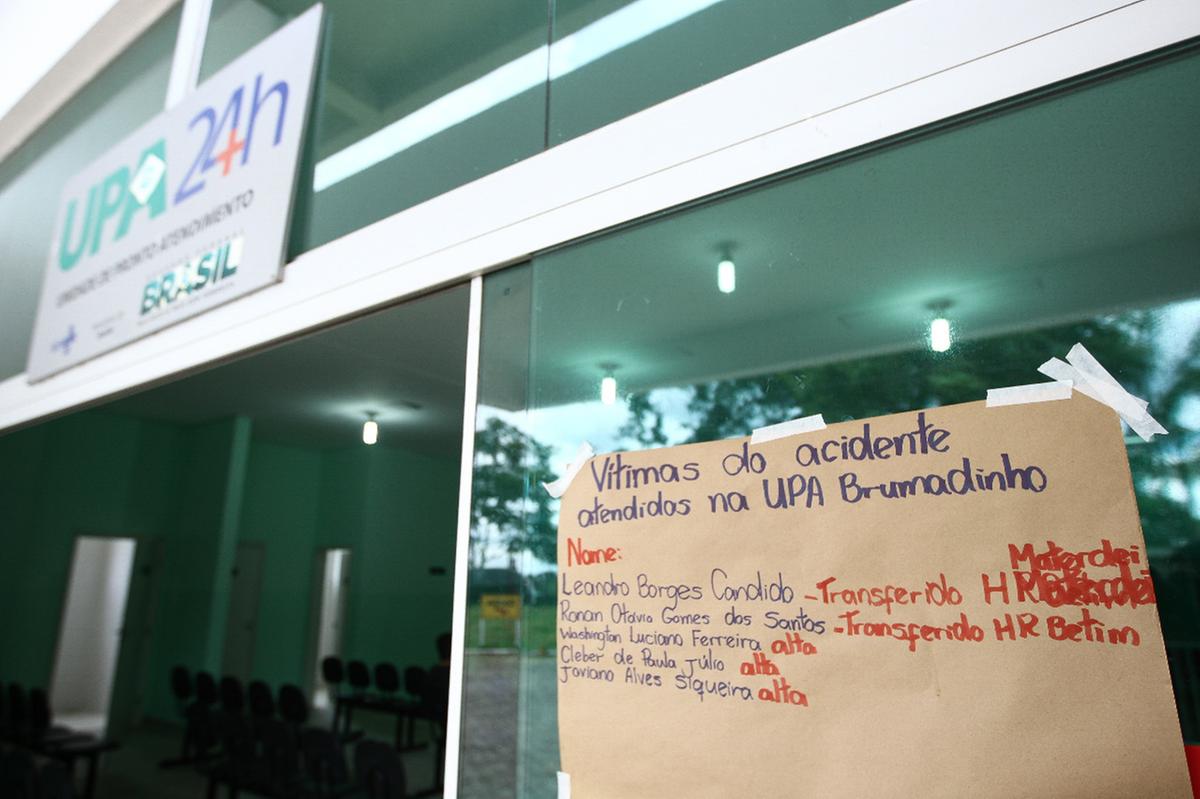 UPA 24h
UNIDADE DE PRONTO ATENDIMENTO
BRASIL
Vítimas do acidente
atendidos na UPA Brumadinho
Name:
Materdei
Leandro Borges Candido - Transferido HR
Ronan Otávio Gomes dos Santos - Transferido HR Betim
Washington Luciano Ferreira alta
Cleber de Paula Júlio alta
Joviano Alves Siqueira alta